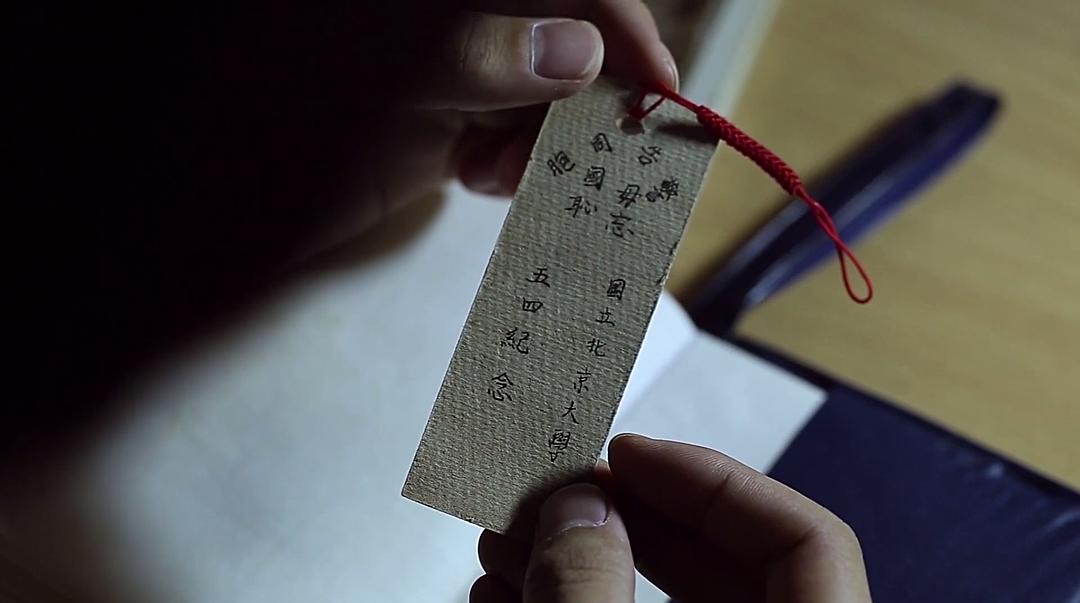 告同胞
毋忘國恥
國立北京大學
五四紀念